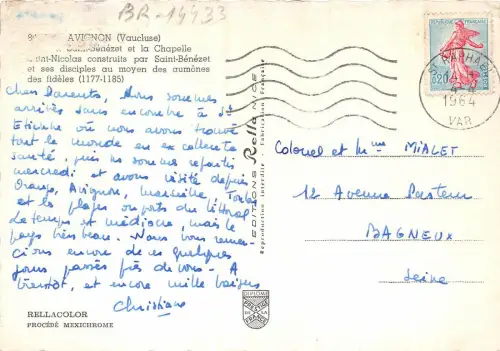 BR-14433
AVIGNON (Vaucluse)
Saint-Bénézet et la Chapelle
Saint-Nicolas construits par Saint-Bénézet
et ses disciples au moyen des aumônes
des fidèles (1177-1185)
Chers Parents, Nous sommes
arrivés sans encombre à St
Etienne où nous avons trouvé
tout le monde en excellente
santé, puis ns sommes repartis
mercredi et avons visité depuis
Orange, Avignon, Marseille, Toulon
et les plages ou ports du littoral.
Le temps est médiocre, mais le
pays très beau. Nous vous remer-
cions encore de ces quelques
jours passés près de vous. A
bientôt, et encore mille baisers
Christiane
RELLACOLOR
PROCÉDÉ MEXICHROME
EDITIONS Rella NICE
Reproduction Interdite - Fabrication Française
DIPLOME
PRESTIGE
DE LA
FRANCE
POSTES
0,20
ST RAPHAEL
1964
VAR
Colonel et Mme MIALET
12 Avenue Pasteur
BAGNEUX
Seine